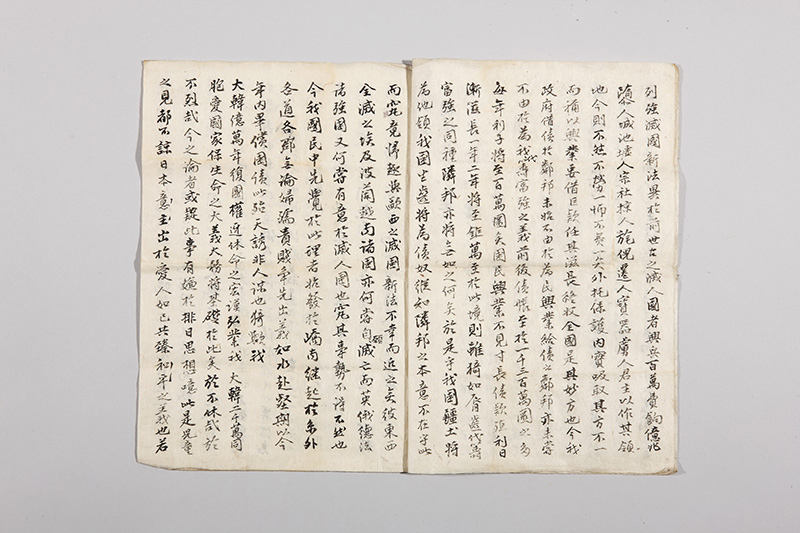 列強滅國新法異於前世古之滅人國者興兵百萬費餉億兆
隳人城池墟人宗社掠人旄倪遷人寶器虜人君主以作其領
地今則不然不勞一師不費一矢外托保護內實吸取其方不一
而稱以興業委借巨款任其滋長終收全國是其妙方也今我
政府借債於鄰邦未始不由於為民興業給債之鄰邦亦未嘗
不由於為我謀富強之義前後債帳至於一千三百萬圜之多
每年利子將至百萬圜矣國民興業不見寸長債款殖利日
漸滋長一年二年將至鉅萬至於此境則雖猗如脣齒代為
富強之同種隣邦亦將無如之何矣於是乎我國疆土將
為他領我國生靈將為債奴縱知隣邦之本意不在乎此
而究竟歸趣與歐西之滅國新法不幸而近之矣彼東西
全滅之埃及波蘭越南諸國亦何嘗自願滅亡而英俄德法
諸強國又何嘗有意於滅人國也究其事勢不得不然也
今我國民中先覺於此理者始發於嶠南繼起於京外
各道各郡無論婦孺貴賤爭先出義如水赴壑期以今
年內畢償國債此殆天誘非人謀也猗歟我
大韓億萬年復國權迓休命之宏謨弘業哉 大韓二千萬同
胞愛國家保生命之大義大務將基礎於此矣於不休哉於
不烈哉今之論者或疑此事有嫌於排日思想噫此是兒童
之見都不諒日本意主出於愛人如己共臻和平之義也若